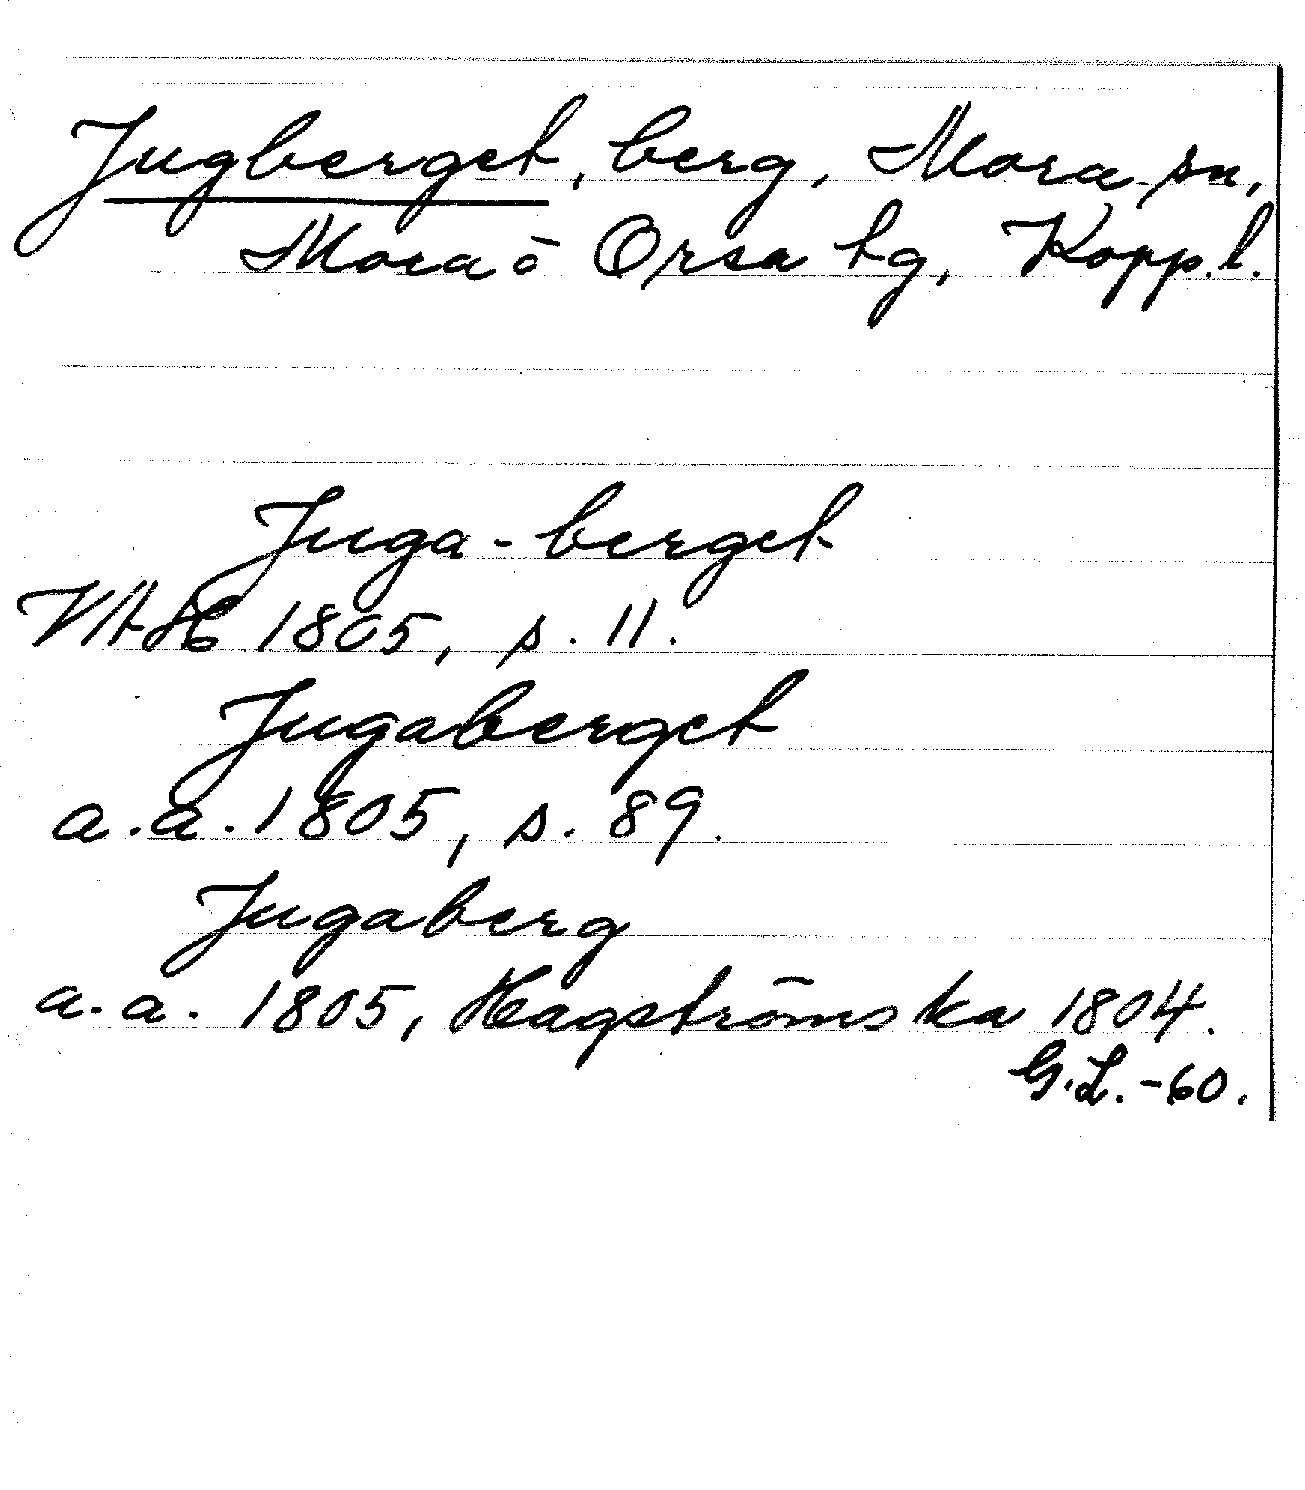 Jugberget, berg, Mora sn,
Mora o Orsa tg, Kopp.l.
Juga-berget
VAH 1805, s. 11.
Jugaberget
a.a. 1805, s. 89.
Jugaberg
a.a. 1805, Hagströmska 1804.
G.L. -60.